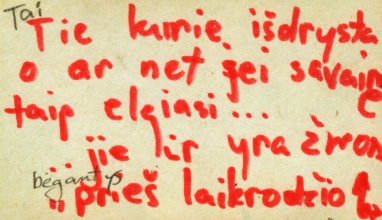 Tai
Tie kurie išdrysta
o ar net jei savaip
taip elgiasi...
jie ir yra žmon
bėgantys
į prieš laikrodžio